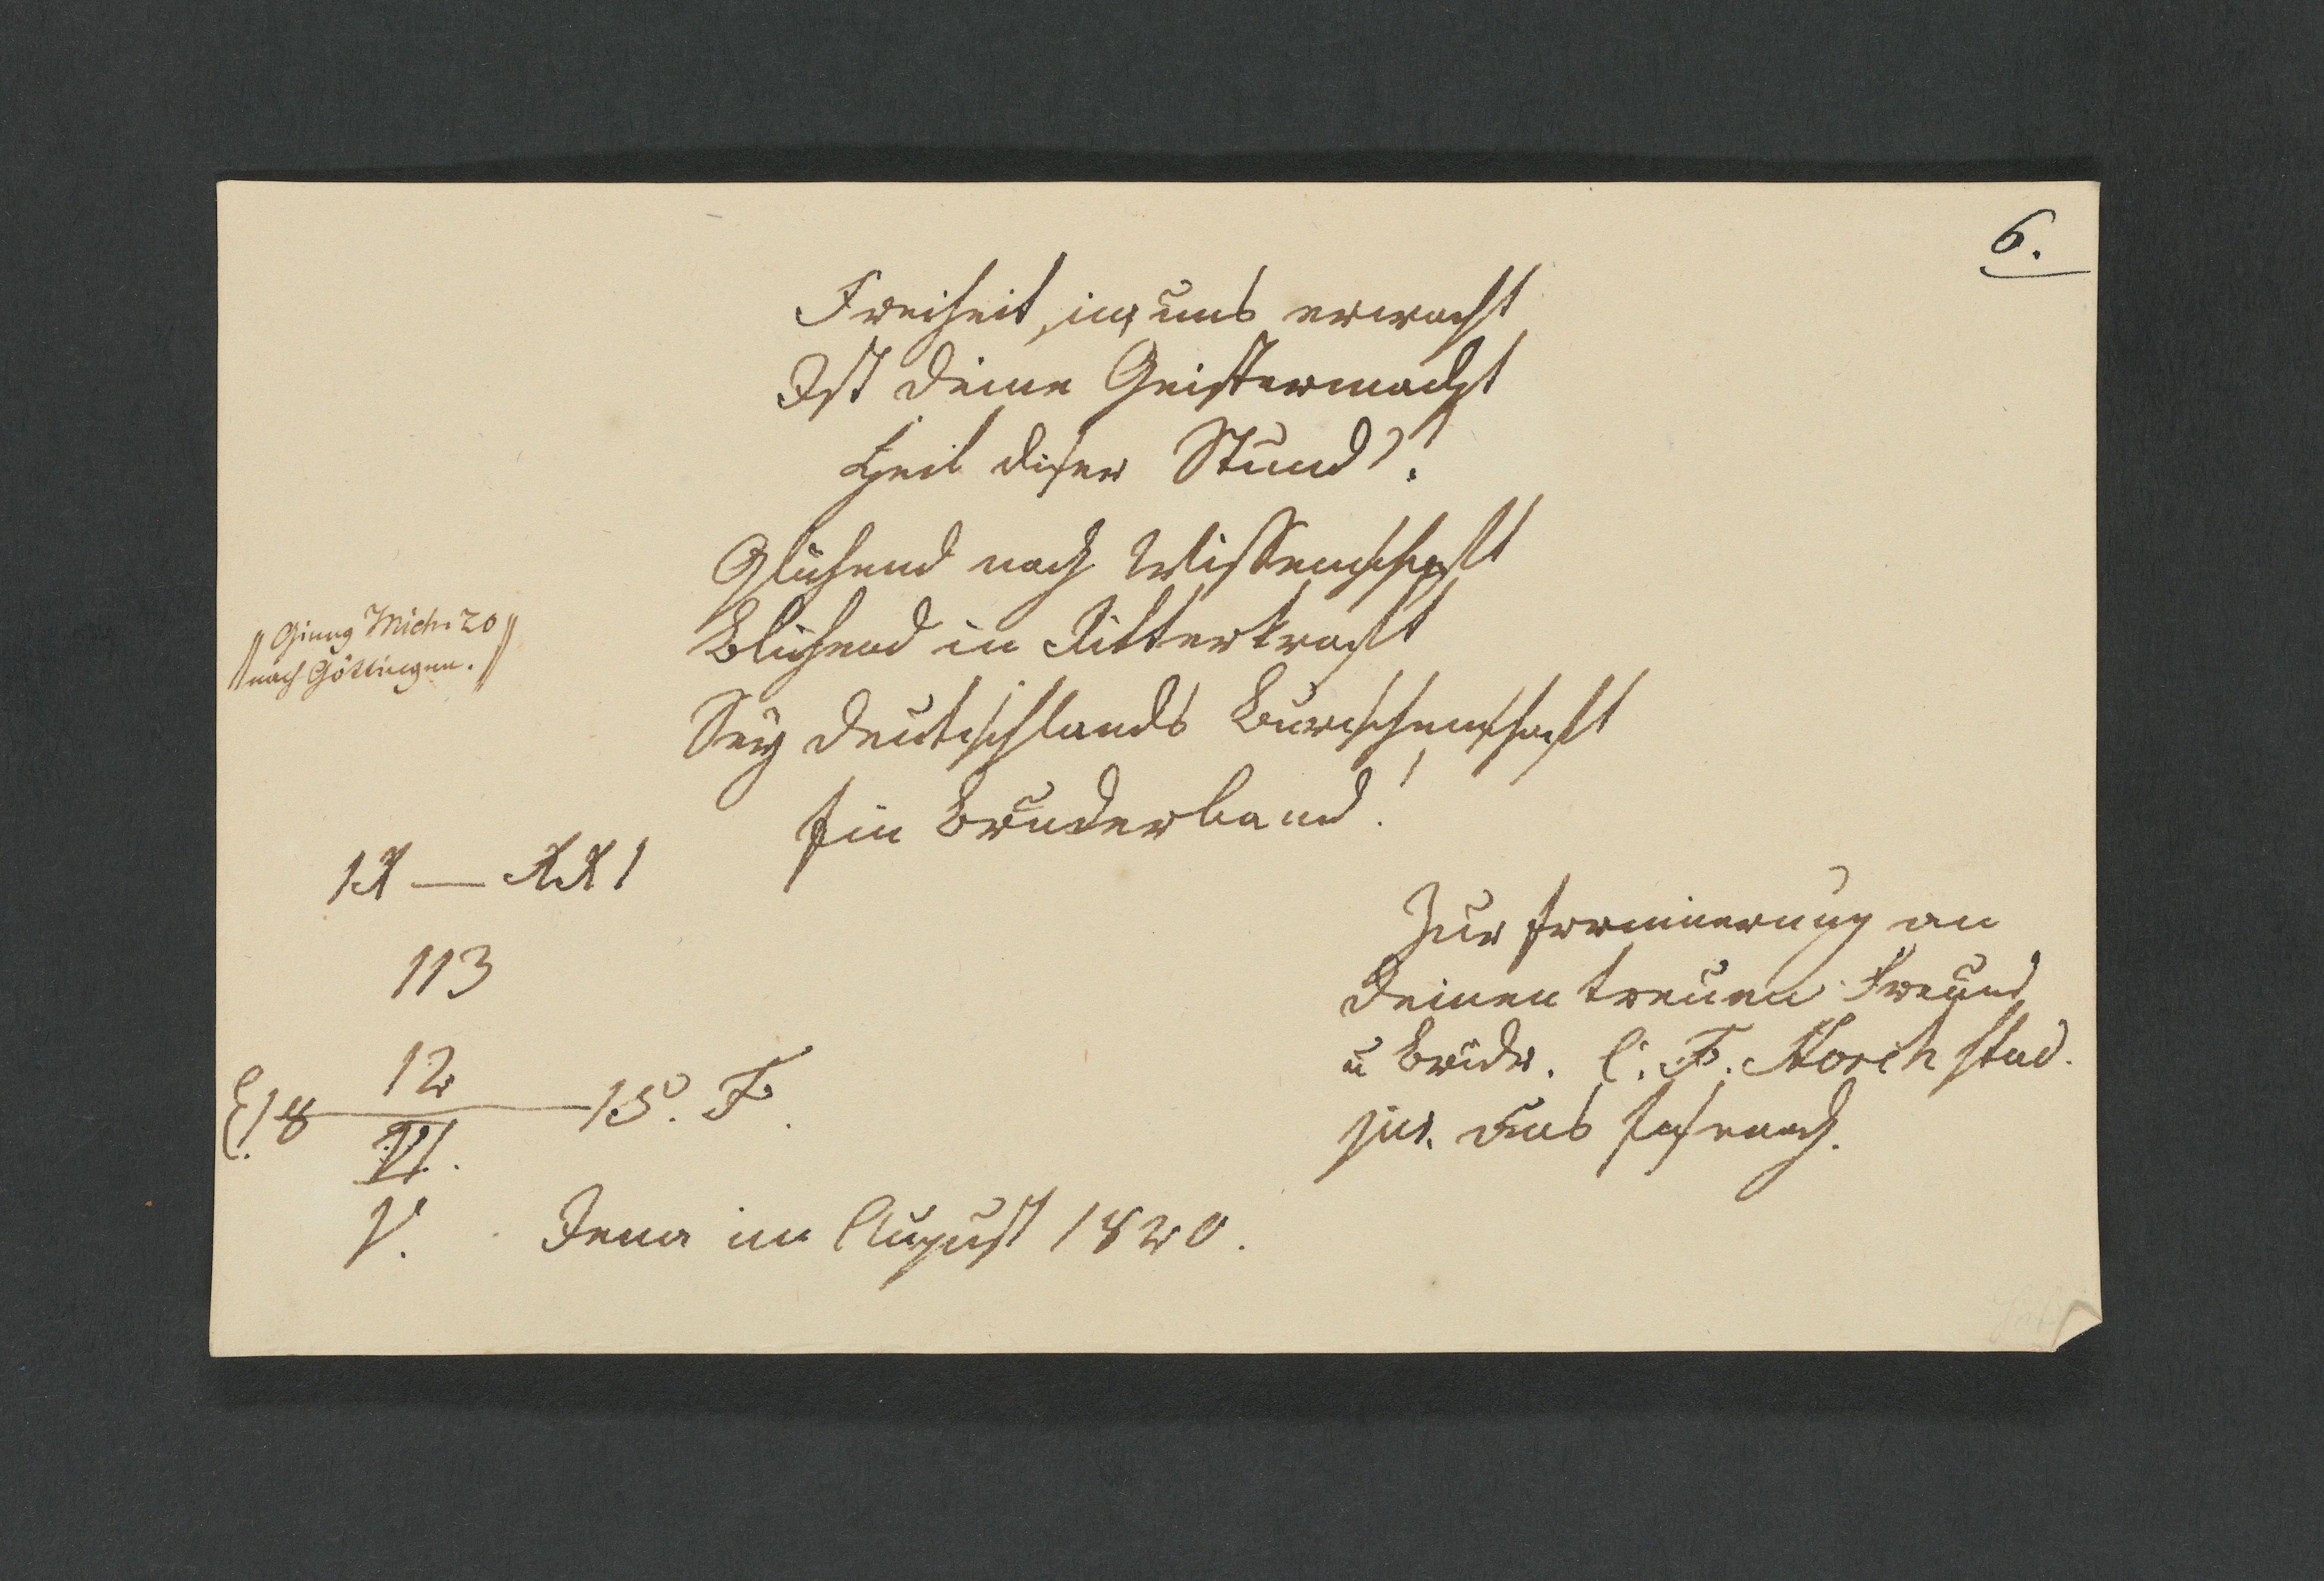 6.
Freiheit, in uns erwacht
Ist deine Geistermacht
Heil diser Stund'!
Glühend nach Wissenschaft
Blühend in Ritterkraft
Sey deutschlands Burschenschaft
Ein Bruderband!
// Gieng Mich. 20 //
// nach Göttingen. //
IX — XXI
113
12
E. 18 — 15. F.
VI.
V.
Zur Erinnerung an
deinen treuen Freund
u Brudr. C. F. Horch stud.
jur. aus Eisenach.
Jena im August 1820.